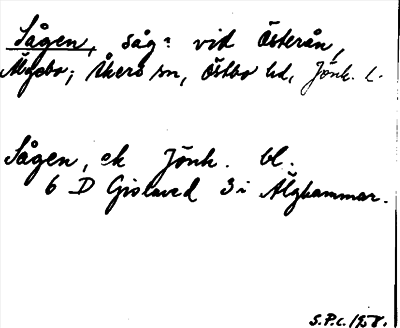 Sågen, såg: vid Österån,
Älgebo; Åkers sn, Östbo hd, Jönk. l.
Sågen, ek Jönk. bl.
6 D Gislaved 3 i Älghammar.
S.P.C. 1958.